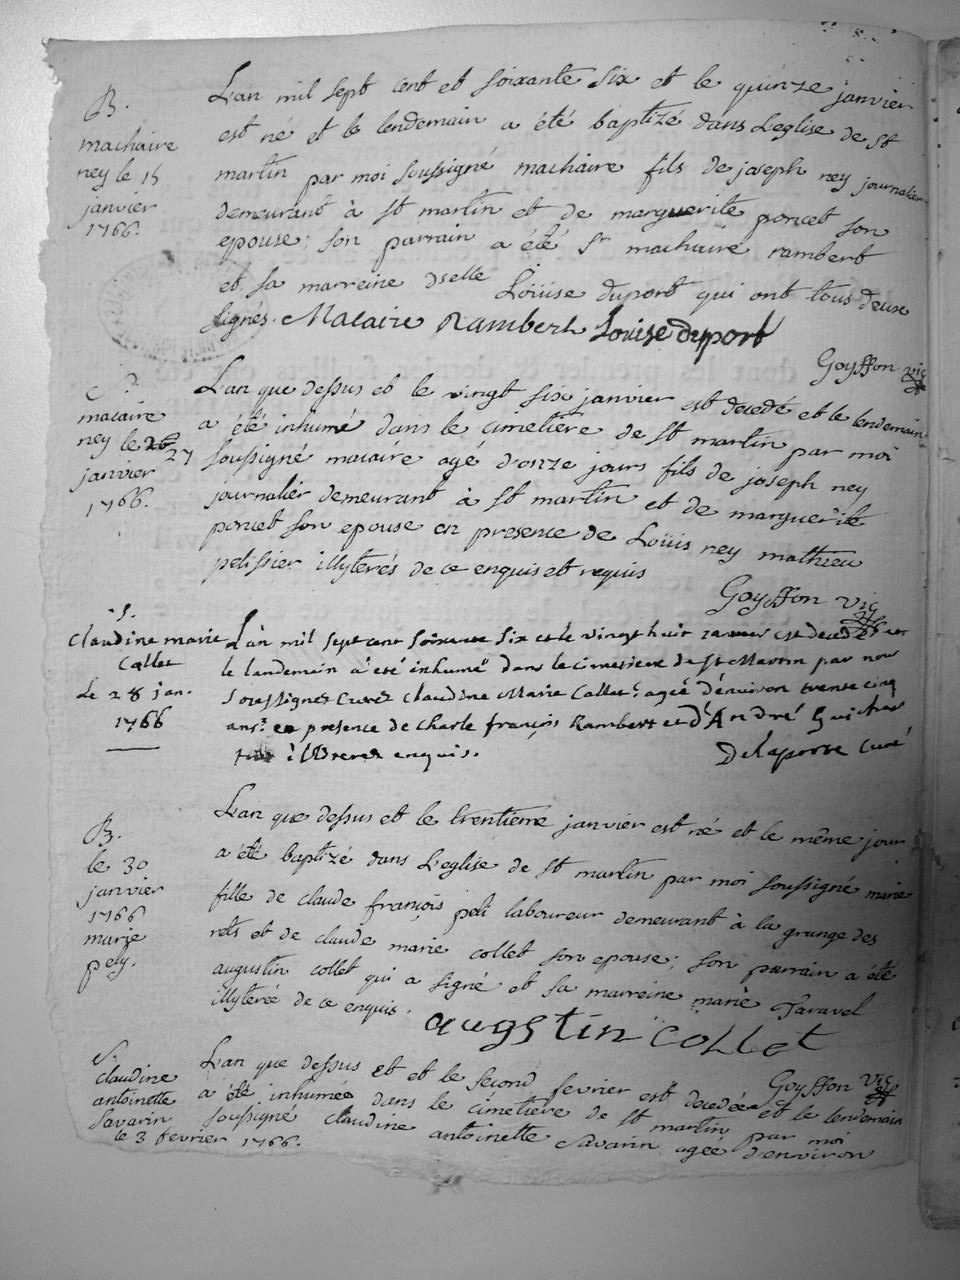 B.
machaire
ney le 15
janvier
1766.
L'an mil sept cent et soixante six et le quinze janvier
est né et le lendemain a été baptizé dans L'eglise de st
martin par moi soussigné machaire fils de joseph ney journalier
demeurant à st martin et de marguerite poncet son
epouse; son parrain a été sr machaire rambert
et sa marreine dselle Loüise duport qui ont tous deux
signés. Macaire Rambert Louise duport
Goyffon vic
S.
macaire
ney le 27
janvier
1766.
L'an que dessus et le vingt six janvier est decedé et le lendemain
a été inhumé dans le cimetiere de st martin par moi
soussigné macaire agé d'onze jours fils de joseph ney
journalier demeurant à st martin et de marguerite
poncet son epouse en presence de Loüis ney mathieu
pelissier illytérés de ce enquis et requis
Goyffon vic
S.
Claudine marie
Collet
Le 28 jan.
1766
L'an mil sept cent soixante six et le vingt huit janvier est decedé et
le landemain à été inhumé dans le cimetiere de St Martin par nous
soussigner Curé Claudine Marie Collet agée d'environ trente cinq
ans en presence de Charle françois Rambert et d'André
tous illiterez enquis.
Delaporte Curé
B.
le 30
janvier
1766
marie
pety.
L'an que dessus et le trentieme janvier est né et le même jour
a été baptizé dans L'eglise de st martin par moi soussigné marie
fille de claude françois peti laboureur demeurant à la grange des
rets et de claude marie collet son epouse; son parrain a été
augustin collet qui a signé et sa marreine marie Taravel
illyterée de ce enquis.
augstin collet
Goyffon vic
S.
claudine
antoinette
Savarin
le 3 fevrier 1766.
L'an que dessus et et le second fevrier est decedée et le lendemain
a été inhumée dans le cimetiere de st martin par moi
soussigné claudine antoinette Savarin agée d'environ